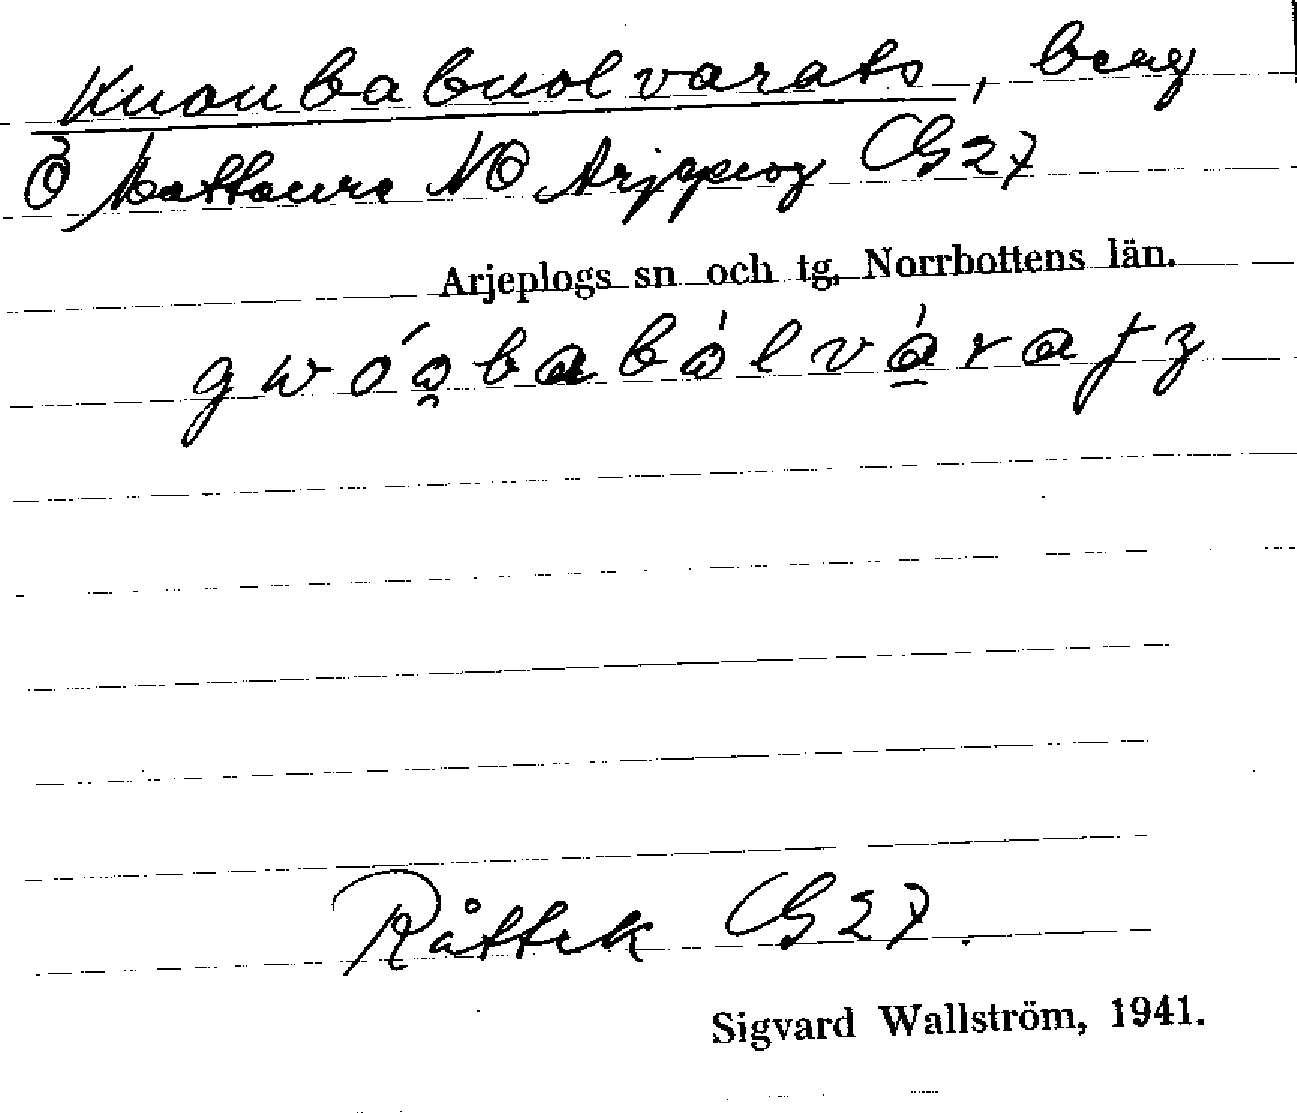 Kuoubabuolvarats, berg
Ö Mattaure NO Arjeplog CG 27
Arjeplogs sn och tg, Norrbottens län.
gwóo̯babòlvàratz
Råttek CG 27.
Sigvard Wallström, 1941.